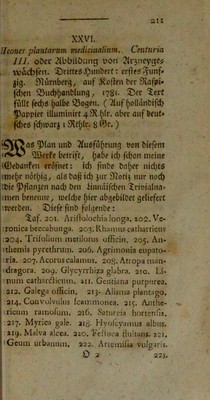 211
XXVI.
Icones plantarum medicinalium. Centuria
III. oder Abbildung von Arzneygewächsen. Drittes Hundert: erstes Funfzig. Nürnberg, auf Kosten der Raspischen Buchhandlung, 1781. Der Text
füllt sechs halbe Bogen. (Auf holländisch
Pappier illuminiet 4 Rthlr. aber auf deutsches schwarz 1 Rthlr. 8 Gr.)
Was Plan und Ausführung von diesem
Werke betrift, habe ich schon meine
Gedanken eröfnet: ich finde daher nichts
mehr nöthig, als daß ich zur Notiz nur noch
die Pflanzen nach den linnäischen Trivialnamen benenne, welche hier abgebildet geliefert
werden. Diese sind folgende:
Taf. 201. Aristolochia longa. 202. Veronica beccabunga. 203. Rhamnus catharticus
204. Trifolium melilotus officin. 205. Anthemis pyrethrum. 206. Agrimonia eupatoria. 207. Acorus calamus. 208. Atropa mandragora. 209. Glycyrrhiza glabra. 210. Linum catharcticum. 211. Gentiana purpurea.
212. Galega officin. 213. Alisma plantago.
214. Convolvulus scammonea. 215. Anthericum ramosum. 216. Satureia hortensis.
217. Myrica gale. 218. Hyoscyamus albus.
219. Malva alcea. 220. Festuca fluitans. 221.
Geum urbanum. 222. Artemisia vulgaris.
O 2 223.